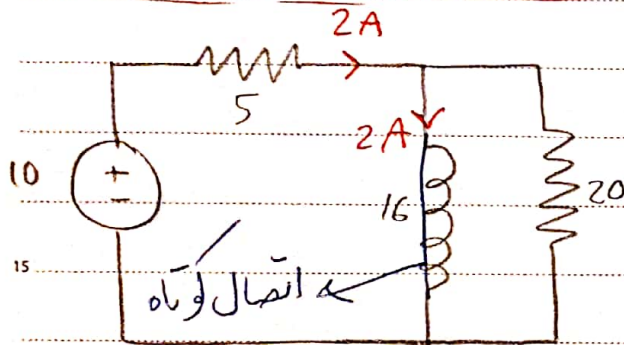 2A
5
2A
10
+
-
16
20
15
اتصال کوتاه